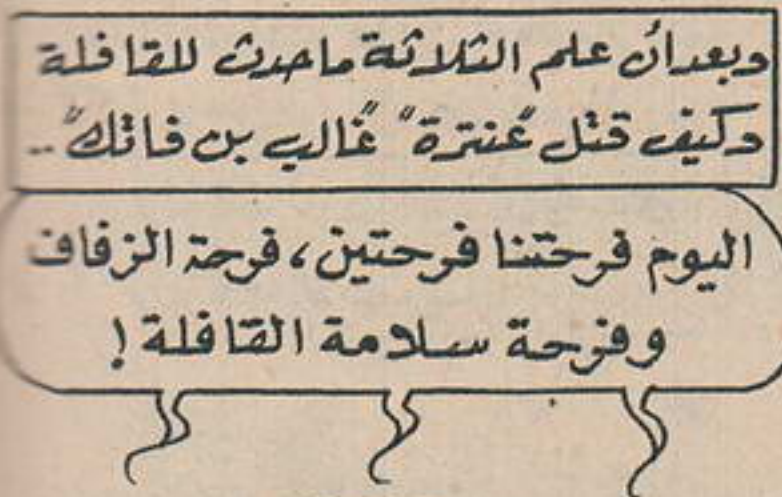 وبعد أن علم الثلاثة ما حدث للقافلة
وكيف قتل "عنترة" "غالب بن فاتك"..
اليوم فرحتنا فرحتين، فرحة الزفاف
وفرحة سلامة القافلة!